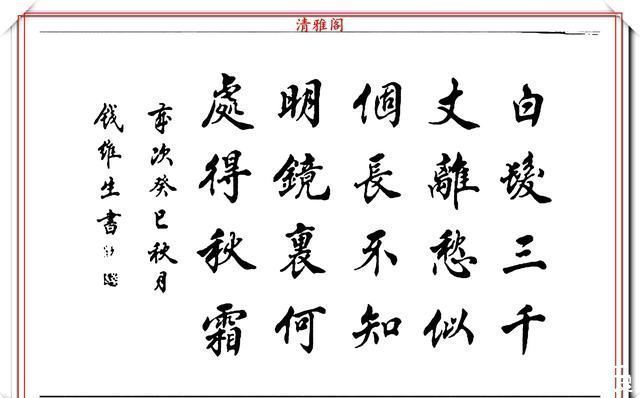 清雅阁
白髮三千
丈離愁似
個長不知
明鏡裏何
處得秋霜
歲次癸巳秋月
錢維生書